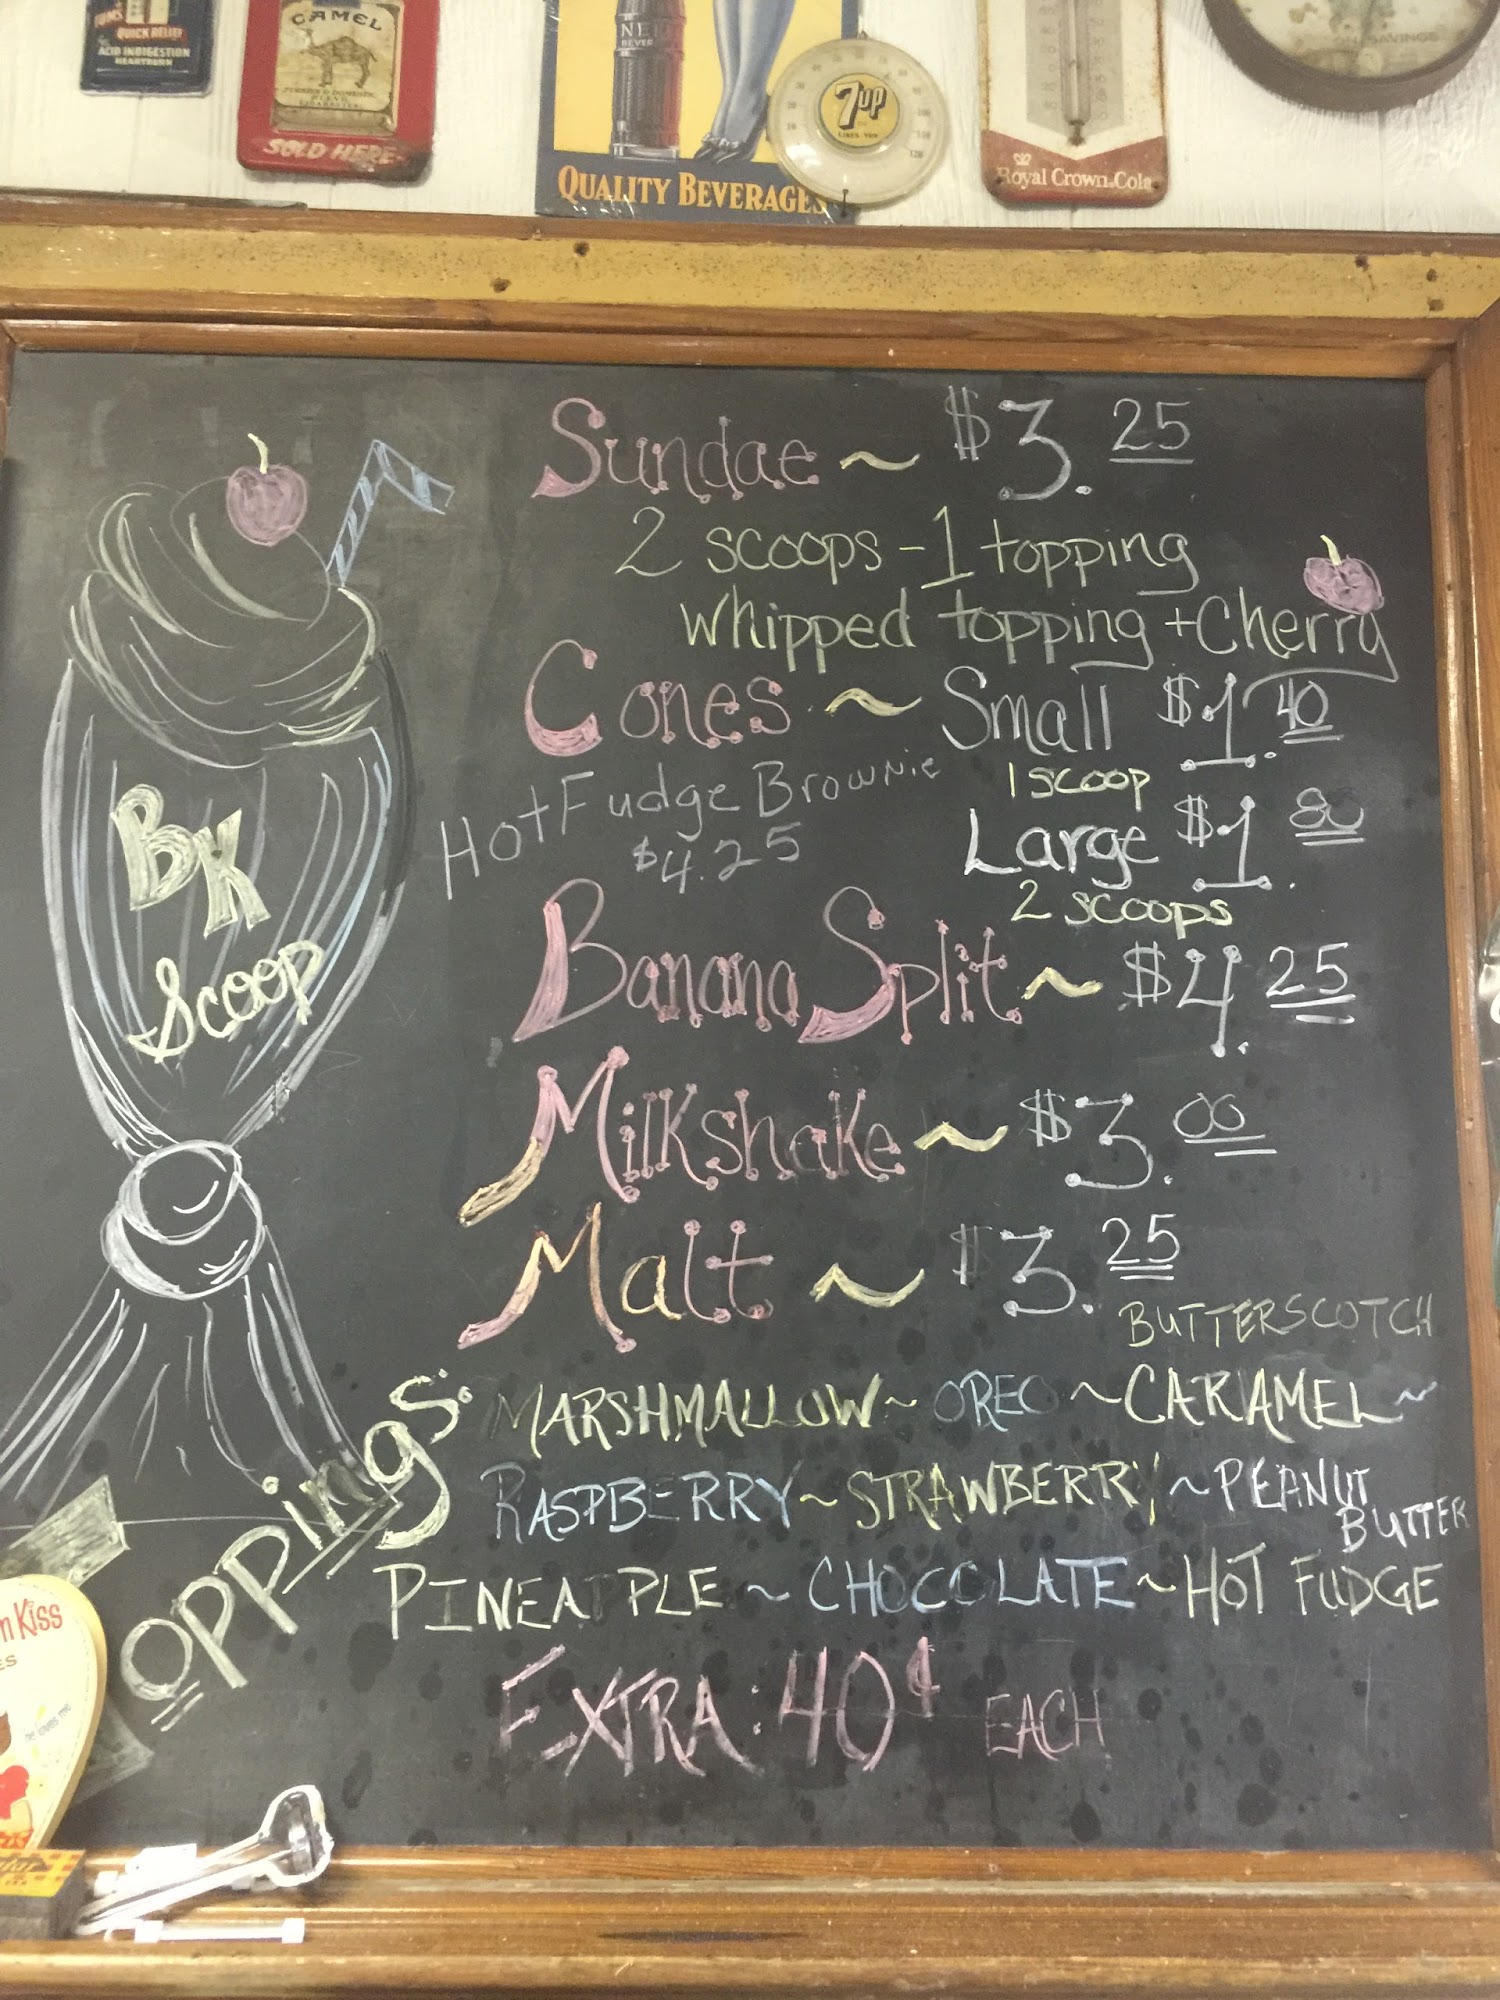 TUMS
QUICK RELIEF
ACID INDIGESTION
HEARTBURN
CAMEL
TURKISH & DOMESTIC
BLEND
CIGARETTES
SOLD HERE
QUALITY BEVERAGES
7up
LIKES YOU
Royal Crown Cola
SAVINGS
Sundae ~ $3.25
2 scoops - 1 topping
whipped topping + Cherry
Cones ~ Small $1.40
1 scoop
Hot Fudge Brownie
$4.25
Large $1.80
2 scoops
Banana Split ~ $4.25
Milkshake ~ $3.00
Malt ~ $3.25
BK
Scoop
Toppings:
BUTTERSCOTCH
MARSHMALLOW ~ OREO ~ CARAMEL ~
RASPBERRY ~ STRAWBERRY ~ PEANUT
BUTTER
PINEAPPLE ~ CHOCOLATE ~ HOT FUDGE
EXTRA: 40¢ EACH
Kiss